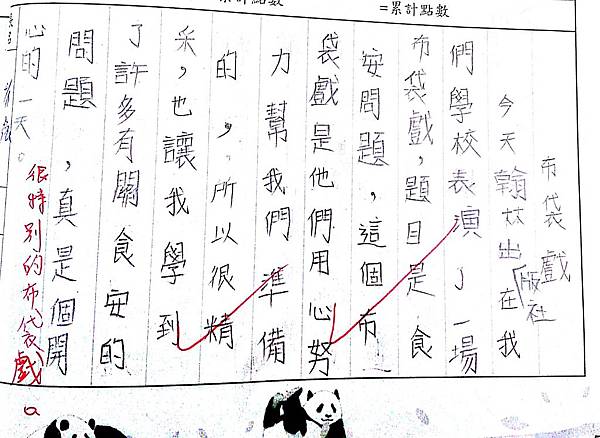 累計點數
=累計點數
布袋戲
今天翰林出版社在我
們學校表演了一場
布袋戲，題目是食
安問題，這個布
袋戲是他們用心努
力幫我們準備
的，所以很精
采，也讓我學到
了許多有關食安的
問題，真是個開
心的一天。
很特別的布袋戲。